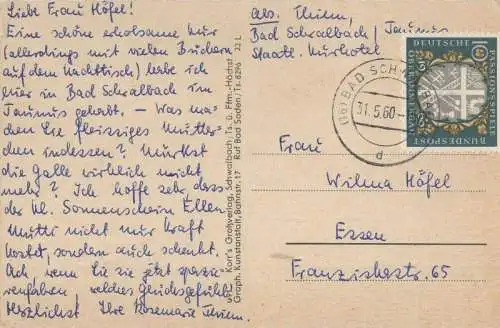 Liebe Frau Höfel!
Eine schöne erholsame Kur
(allerdings mit vielen Büchern
auf dem Nachttisch) habe ich
hier in Bad Schwalbach im
Taunus gehabt. – Was ma-
chen Sie fleissiges Mutter-
chen indessen? Muckst
die Galle wirklich nicht
mehr? Ich hoffe sehr dass
der kl. Sonnenschein Ellen
Mutti nicht nur Kraft
kostet, sondern auch schenkt.
Ach, wenn Sie sie jetzt spazie-
renfahren welches Glücksgefühl
Herzlichst Ihre Rosemarie Thilm.
Korr's Großverlag, Schwalbach, Ts. ü. Ffm.-Höchst
Graph. Kunstanstalt, Bahnstr. 17 Ruf Bad Soden, Ts. 6296 22 L
Abs. Thilm,
Bad Schwalbach / Taunus
Staatl. Kurhotel
(16) BAD SCHWALBACH
31.5.60
d
DEUTSCHE
BUNDESPOST
PASSIONSSPIELE
OBERAMMERGAU
10
Frau
Wilma Höfel
Essen
Franziskastr. 65